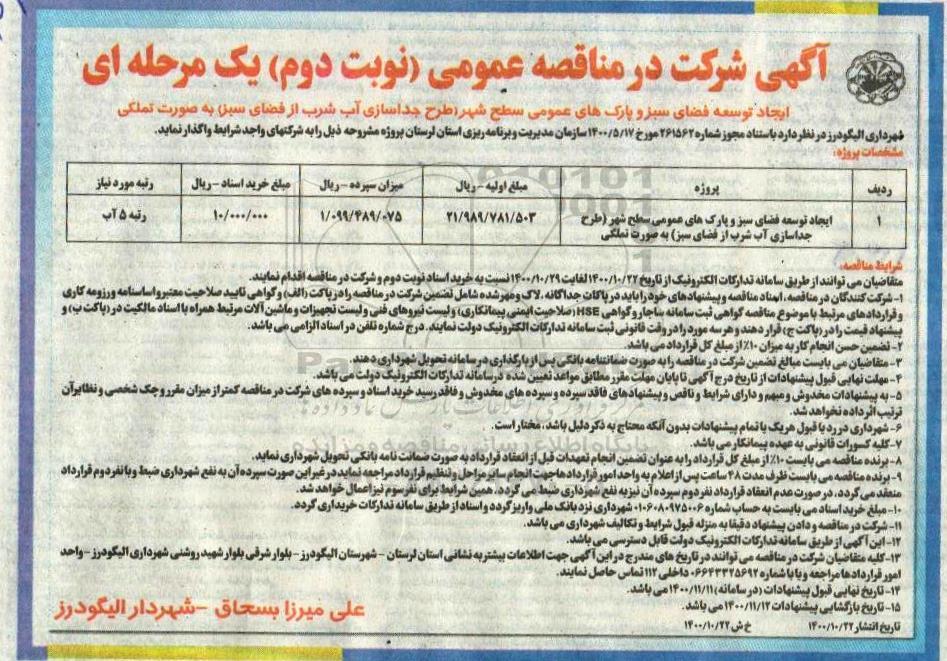 آگهی شرکت در مناقصه عمومی (نوبت دوم) یک مرحله ای
ایجاد توسعه فضای سبز و پارک های عمومی سطح شهر (طرح جداسازی آب شرب از فضای سبز) به صورت تملکی
شهرداری الیگودرز در نظر دارد باستناد مجوز شماره ۲۶۱۵۶۲ مورخ ۱۴۰۰/۵/۱۷ سازمان مدیریت و برنامه ریزی استان لرستان پروژه مشروحه ذیل را به شرکتهای واجد شرایط واگذار نماید.
مشخصات پروژه:
ردیف پروژه مبلغ اولیه - ریال میزان سپرده - ریال مبلغ خرید اسناد - ریال رتبه مورد نیاز
۱ ایجاد توسعه فضای سبز و پارک های عمومی سطح شهر (طرح ۲۱/۹۸۹/۷۸۱/۵۰۳ ۱/۰۹۹/۴۸۹/۰۷۵ ۱۰/۰۰۰/۰۰۰ رتبه ۵ آب
جداسازی آب شرب از فضای سبز) به صورت تملکی
شرایط مناقصه:
متقاضیان می توانند از طریق سامانه تدارکات الکترونیک از تاریخ ۱۴۰۰/۱۰/۲۲ لغایت ۱۴۰۰/۱۰/۲۹ نسبت به خرید اسناد نوبت دوم و شرکت در مناقصه اقدام نمایند.
۱- شرکت کنندگان در مناقصه، اسناد مناقصه و پیشنهادهای خود را باید در پاکات جداگانه، لاک و مهر شده شامل تضمین شرکت در مناقصه را در پاکت (الف) و گواهی تایید صلاحیت معتبر و اساسنامه و رزومه کاری
و قراردادهای مرتبط با موضوع مناقصه گواهی ثبت سامانه ساجار و گواهی HSE (صلاحیت ایمنی پیمانکاری) و لیست نیروهای فنی و لیست تجهیزات و ماشین آلات مرتبط همراه با اسناد مالکیت در (پاکت ب) و
پیشنهاد قیمت را در (پاکت ج) قرار دهند و هر سه مورد را در وقت قانونی ثبت سامانه تدارکات الکترونیک دولت نمایند. درج شماره تلفن در اسناد الزامی می باشد.
۲- تضمین حسن انجام کار به میزان ۱۰٪ از مبلغ کل قرارداد می باشد.
۳- متقاضیان می بایست مبالغ تضمین شرکت در مناقصه را به صورت ضمانتنامه بانکی پس از بارگذاری در سامانه تحویل شهرداری دهند.
۴- مهلت نهایی قبول پیشنهادات از تاریخ درج آگهی تا پایان مهلت مقرر مطابق مواعد تعیین شده در سامانه تدارکات الکترونیک دولت می باشد.
۵- به پیشنهادات مخدوش و مبهم و دارای شرایط و ناقص و پیشنهادهای فاقد سپرده و سپرده های مخدوش و فاقد رسید خرید اسناد و سپرده های شرکت در مناقصه کمتر از میزان مقرر و چک شخصی و نظایر آن
ترتیب اثر داده نخواهد شد.
۶- شهرداری در رد یا قبول هریک یا تمام پیشنهادات بدون آنکه محتاج به ذکر دلیل باشد، مختار است.
۷- کلیه کسورات قانونی به عهده پیمانکار می باشد.
۸- برنده مناقصه می بایست ۱۰٪ از مبلغ کل قرارداد را به عنوان تضمین انجام تعهدات قبل از انعقاد قرارداد به صورت ضمانت نامه بانکی تحویل شهرداری نماید.
۹- برنده مناقصه می بایست ظرف مدت ۴۸ ساعت پس از اعلام به واحد امور قراردادها جهت انجام سایر مراحل و تنظیم قرارداد مراجعه نماید در غیر این صورت سپرده آن به نفع شهرداری ضبط و با نفر دوم قرارداد
منعقد می گردد، در صورت عدم انعقاد قرارداد نفر دوم سپرده آن نیز به نفع شهرداری ضبط می گردد. همین شرایط برای نفر سوم نیز اعمال خواهد شد.
۱۰- مبلغ خرید اسناد می بایست به حساب شماره ۰۱۰۶۰۸۰۹۷۵۰۰۶ شهرداری نزد بانک ملی واریز گردد و اسناد از طریق سامانه تدارکات خریداری گردد.
۱۱- شرکت در مناقصه و دادن پیشنهاد دقیقا به منزله قبول شرایط و تکالیف شهرداری می باشد.
۱۲- این آگهی از طریق سامانه تدارکات الکترونیک دولت قابل دسترسی می باشد.
۱۳- کلیه متقاضیان شرکت در مناقصه می توانند در تاریخ های مندرج در این آگهی جهت اطلاعات بیشتر به نشانی استان لرستان - شهرستان الیگودرز - بلوار شرقی بلوار شهید روشنی شهرداری الیگودرز - واحد
امور قراردادها مراجعه و یا با شماره ۰۶۶۴۳۳۲۵۶۹۲ داخلی ۱۱۲ تماس حاصل نمایند.
۱۴- تاریخ نهایی قبول پیشنهادات (در سامانه) ۱۴۰۰/۱۱/۱۱ می باشد.
۱۵- تاریخ بازگشایی پیشنهادات ۱۴۰۰/۱۱/۱۲ می باشد.
تاریخ انتشار ۱۴۰۰/۱۰/۲۲ خ ش ۱۴۰۰/۱۰/۲۲
علی میرزا بسحاق - شهردار الیگودرز